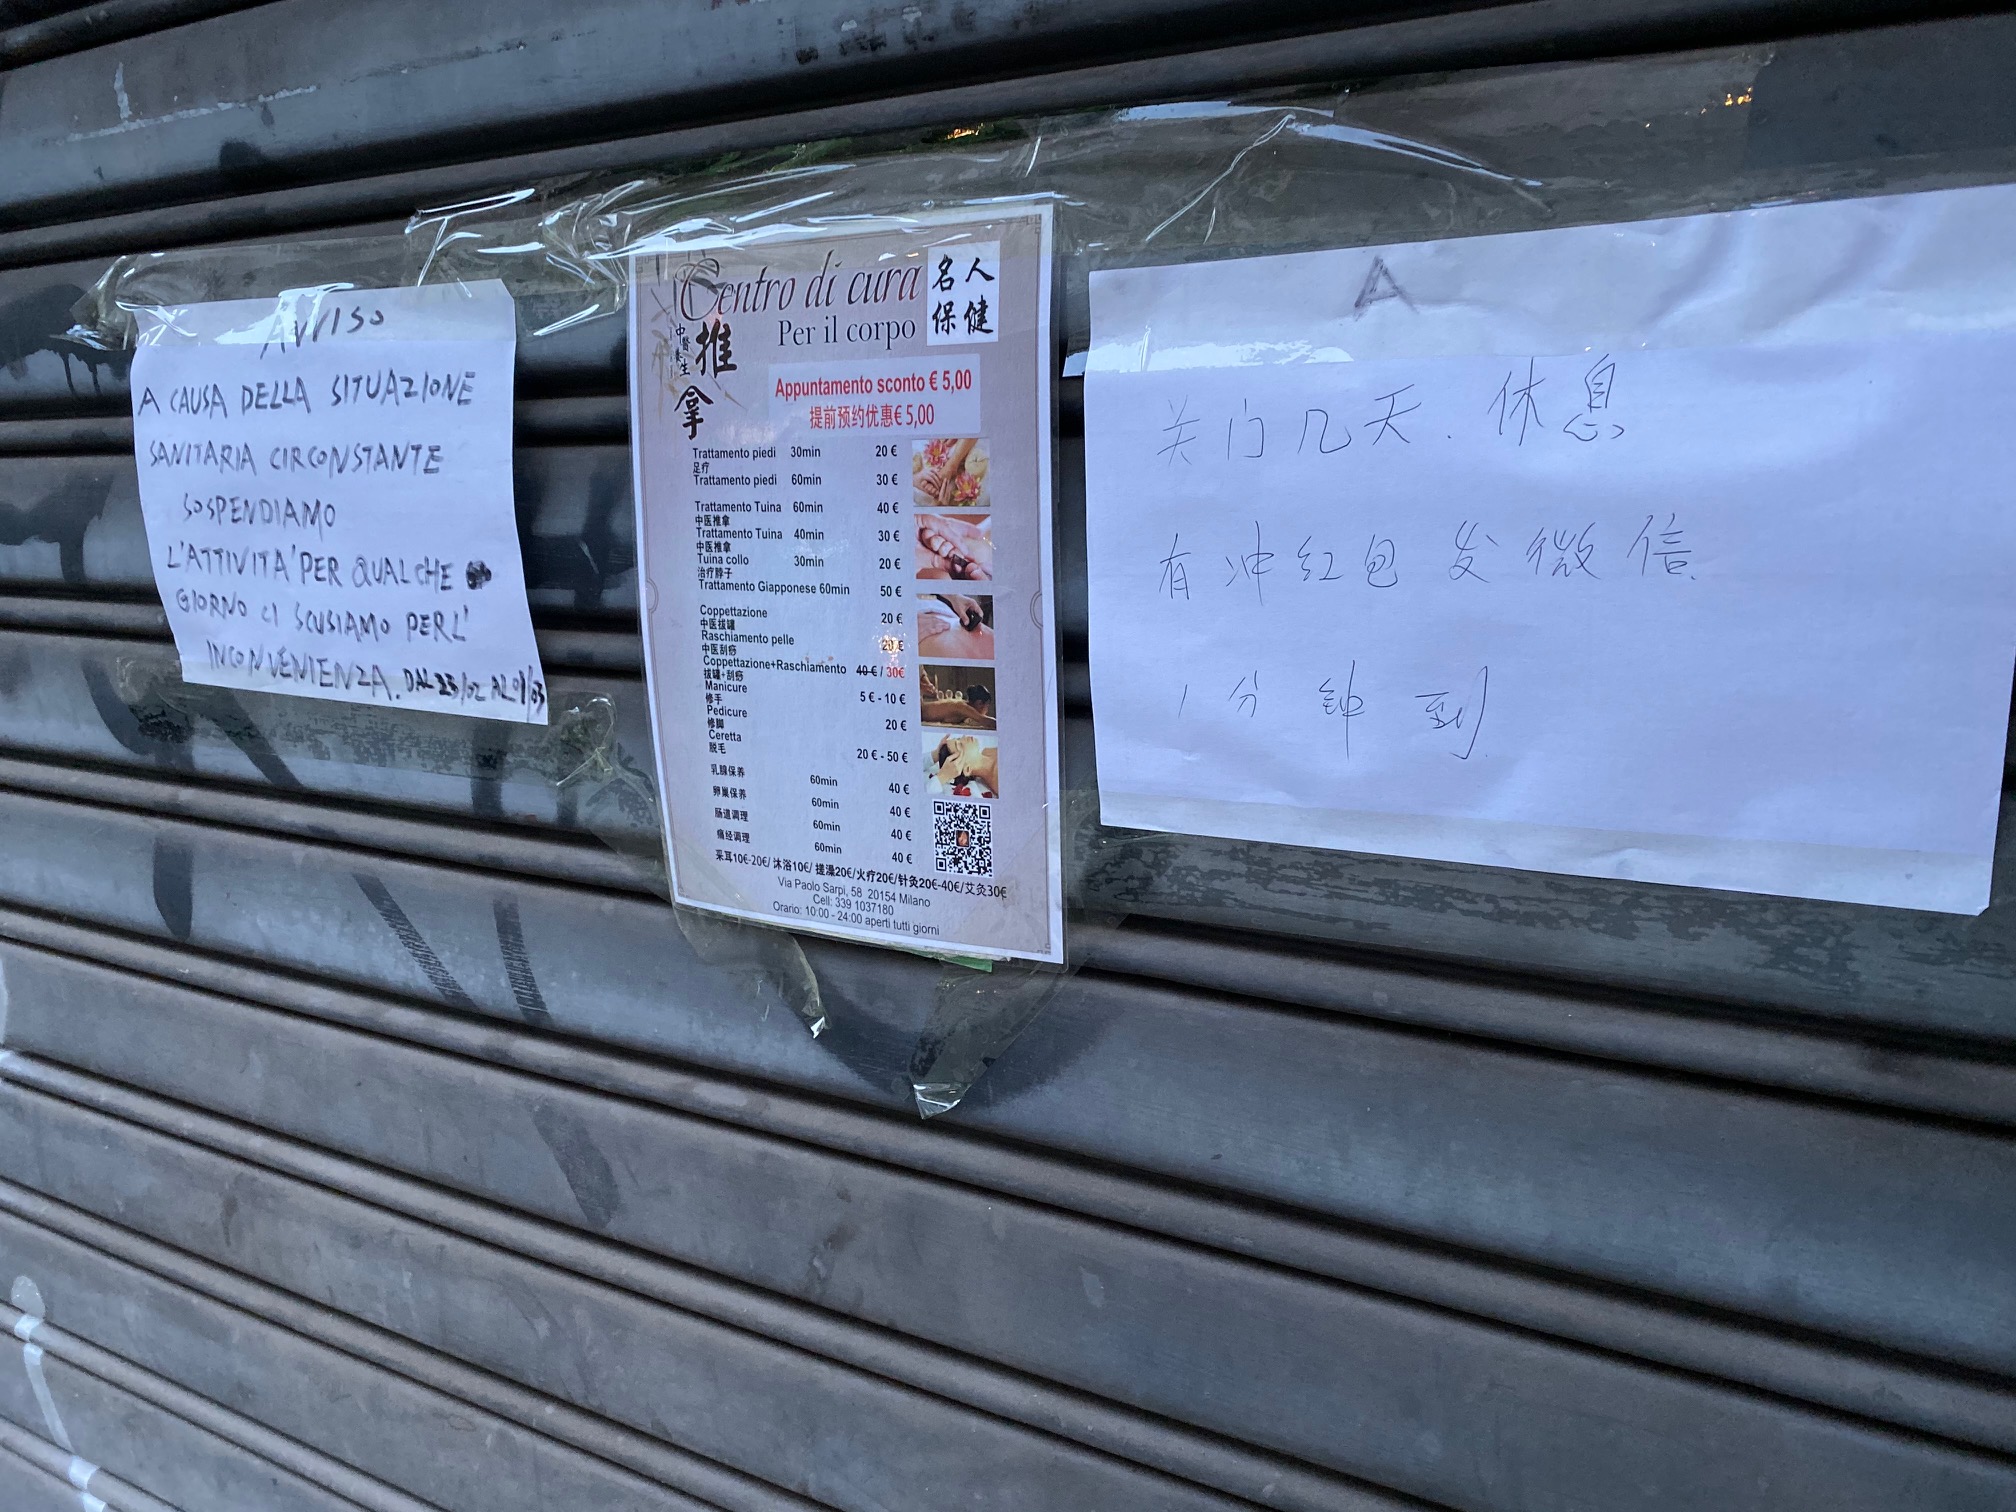 AVVISO
A CAUSA DELLA SITUAZIONE
SANITARIA CIRCONSTANTE
SOSPENDIAMO
L'ATTIVITA' PER QUALCHE
GIORNO CI SCUSIAMO PER L'
INCONVENIENZA. DAL 23/02 AL 01/03
Centro di cura
Per il corpo
名人
保健
中醫養生
推拿
Appuntamento sconto € 5,00
提前预约优惠€ 5,00
Trattamento piedi 30min 20 €
足疗
Trattamento piedi 60min 30 €
Trattamento Tuina 60min 40 €
中医推拿
Trattamento Tuina 40min 30 €
中医推拿
Tuina collo 30min 20 €
治疗脖子
Trattamento Giapponese 60min 50 €
Coppettazione 20 €
中医拔罐
Raschiamento pelle 20 €
中医刮痧
Coppettazione+Raschiamento 40 € / 30€
拔罐+刮痧
Manicure 5 € - 10 €
修手
Pedicure 20 €
修脚
Ceretta 20 € - 50 €
脱毛
乳腺保养 60min 40 €
卵巢保养 60min 40 €
肠道调理 60min 40 €
痛经调理 60min 40 €
采耳10€-20€/ 沐浴10€/ 搓澡20€/火疗20€/针灸20€-40€/艾灸30€
Via Paolo Sarpi, 58 20154 Milano
Cell: 339 1037180
Orario: 10:00 - 24:00 aperti tutti giorni
A
关门几天. 休息
有冲红包发微信.
1分钟到.